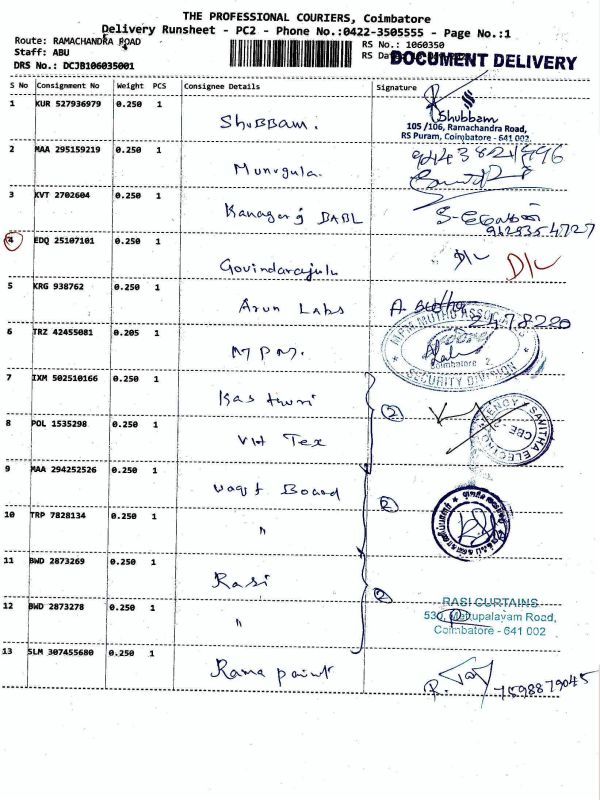 THE PROFESSIONAL COURIERS, Coimbatore
Delivery Runsheet - PC2 - Phone No.:0422-3505555 - Page No.:1
Route: RAMACHANDRA ROAD
RS No.: 1060350
Staff: ABU
DOCUMENT DELIVERY
DRS No.: DCJB106035001
S No Consignment No Weight PCS Consignee Details Signature
1 KUR 527936979 0.250 1 Shubbam.
Shubbam
105 /106, Ramachandra Road,
RS Puram, Coimbatore - 641 002.
2 MAA 295159219 0.250 1 Munugula.
3 KVT 2702604 0.250 1 Kanagaraj DABL
9625354727
4 EDQ 25107101 0.250 1 Govindarajulu D/L D/L
5 KRG 938762 0.250 1 Arun Labs
2478220
6 TRZ 42455081 0.205 1 MPM.
MPM MUTHU ASSOC
Coimbatore 2
SECURITY DIVISION
7 IXM 502510166 0.250 1 Kasthuri
(2)
8 POL 1535298 0.250 1 VH Tex
SAVITHA ELECTRO
CBE
9 MAA 294252526 0.250 1 Waqf Board
(2)
10 TRP 7828134 0.250 1 "
11 BWD 2873269 0.250 1 Rasi
(2)
12 BWD 2873278 0.250 1 "
RASI CURTAINS
530, Mettupalayam Road,
Coimbatore - 641 002
13 SLM 307455680 0.250 1 Rama paint
7598879045